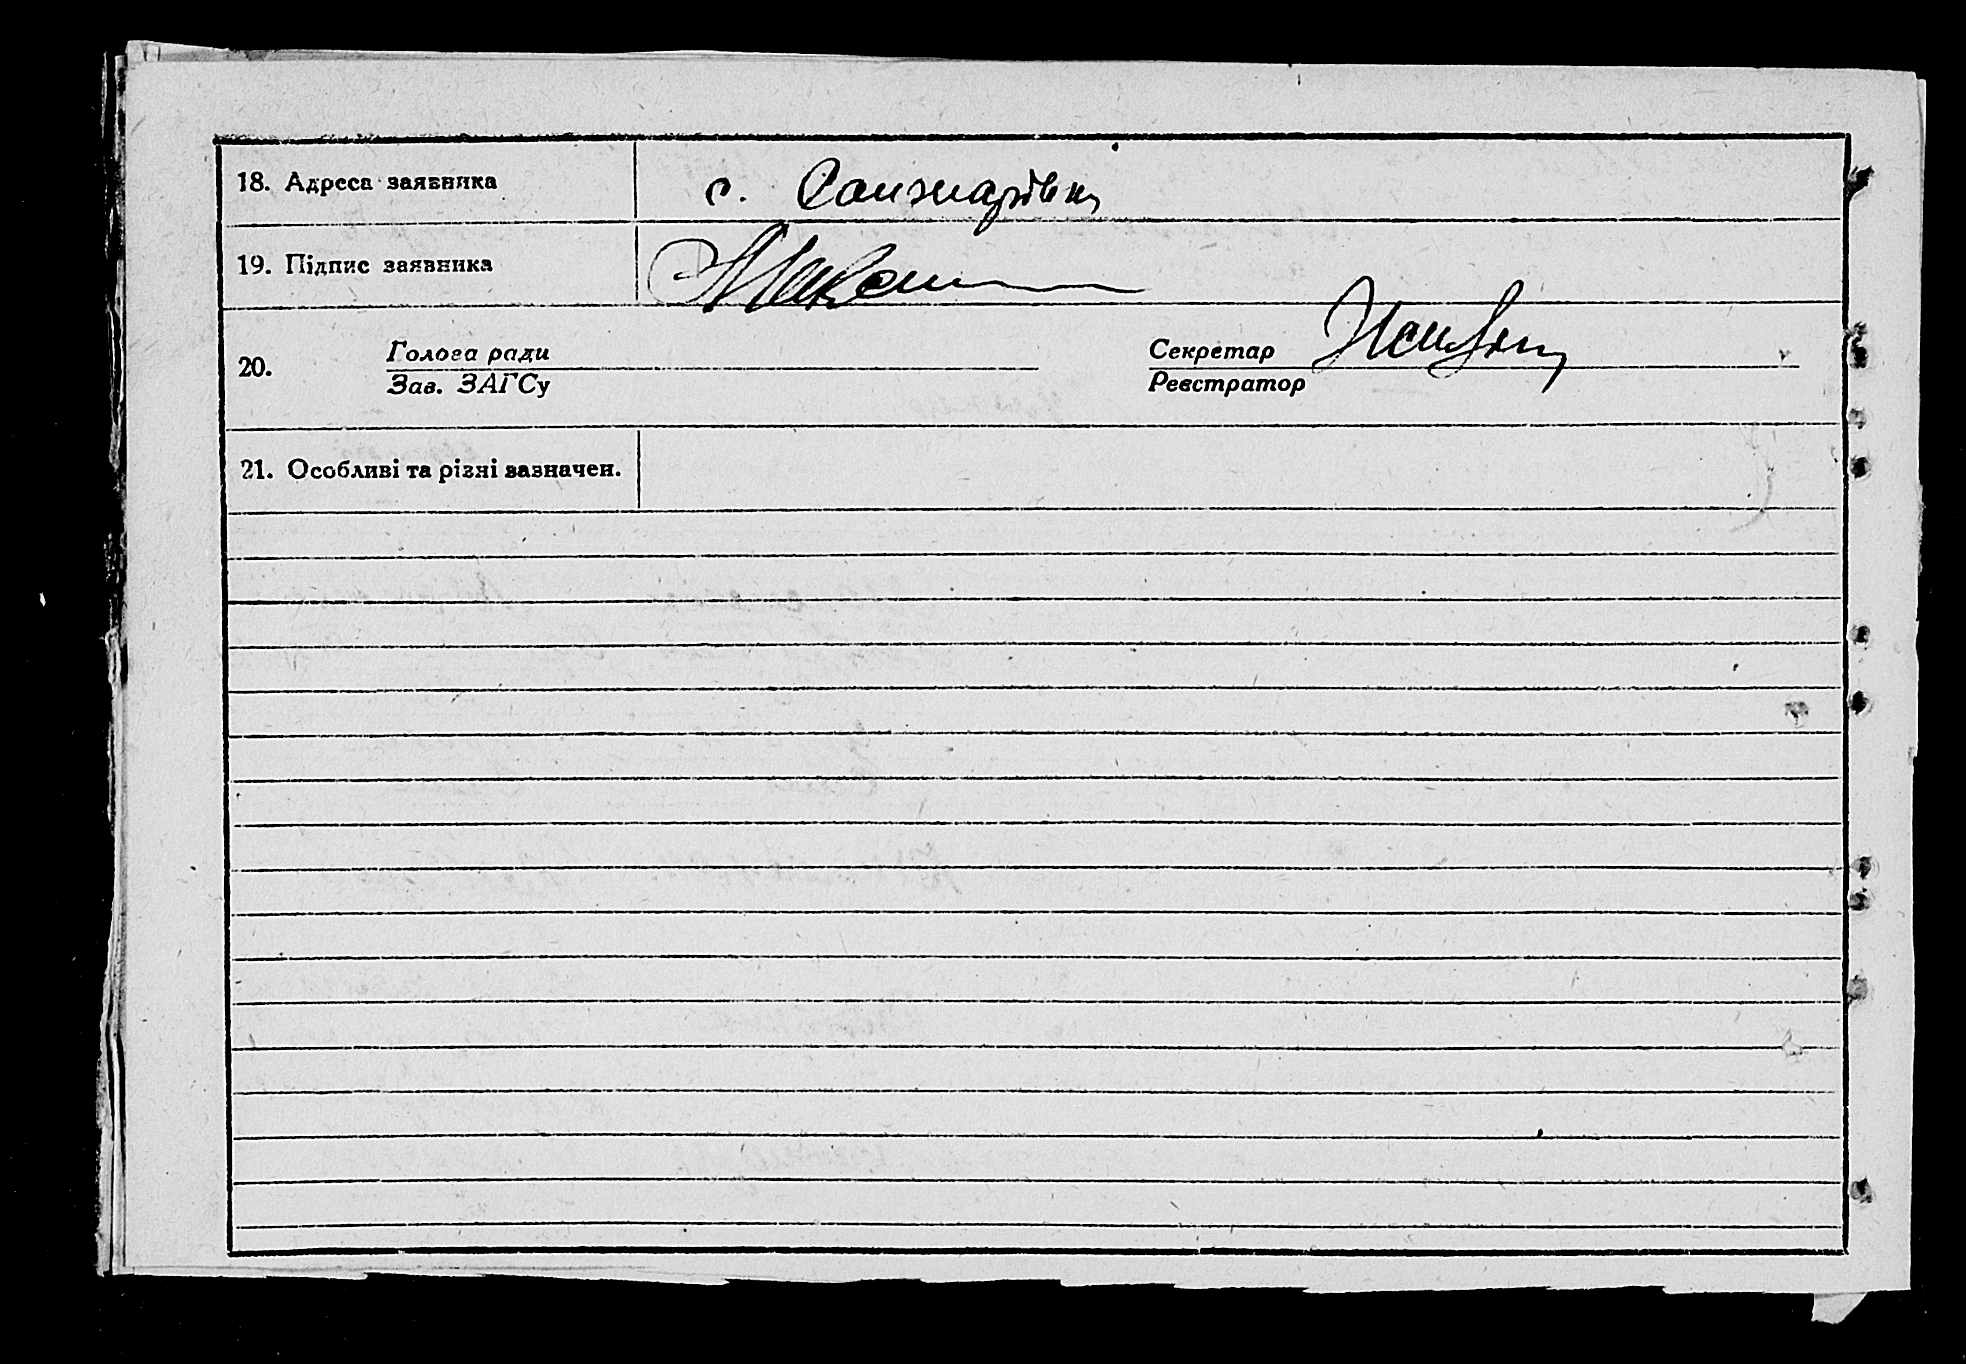 18. Адреса заявника
с. Санжарівка
19. Підпис заявника
20. Голова ради
Зав. ЗАГСу
Секретар
Реєстратор
21. Особливі та різні зазначен.